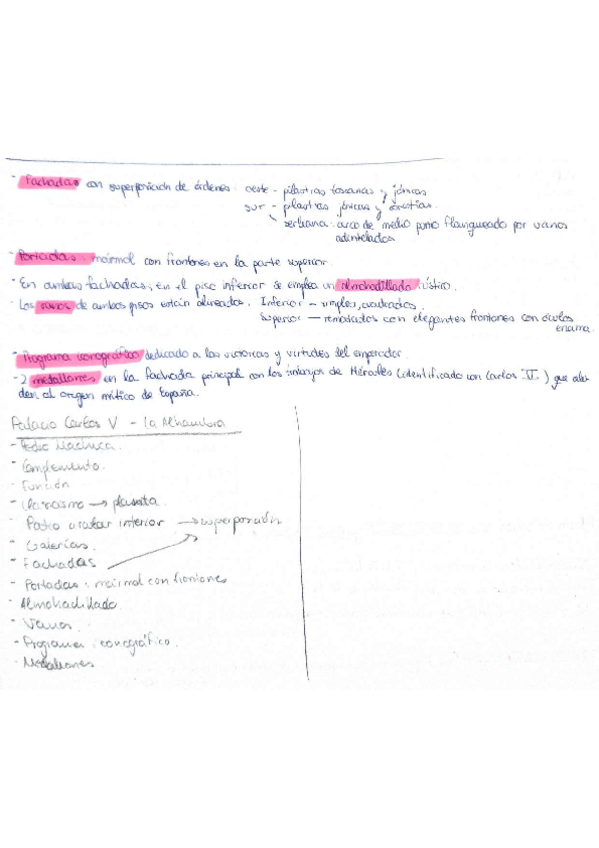 - Fachadas con superposición de órdenes: oeste - pilastras toscanas y jónicas
sur - pilastras jónicas y corintias.
serliana: arco de medio punto flanqueado por vanos
adintelados
- Portadas: mármol con frontones en la parte superior.
- En ambas fachadas, en el piso inferior se emplea un almohadillado rústico.
- Los vanos de ambos pisos están alineados. Inferior - simples, cuadrados.
Superior - rematados con elegantes frontones con óculos
encima.
- Programa iconográfico dedicado a las victorias y virtudes del emperador.
- 2 medallones en la fachada principal con los trabajos de Hércules (identificado con Carlos V) que alu-
den al origen mítico de España.
Palacio Carlos V - la Alhambra
- Pedro Machuca.
- Complemento.
- Función
- Clasicismo → planta.
- Patio circular interior → superposición
- Galerías.
- Fachadas
- Portadas: mármol con frontones
- Almohadillado.
- Vanos.
- Programa iconográfico.
- Medallones